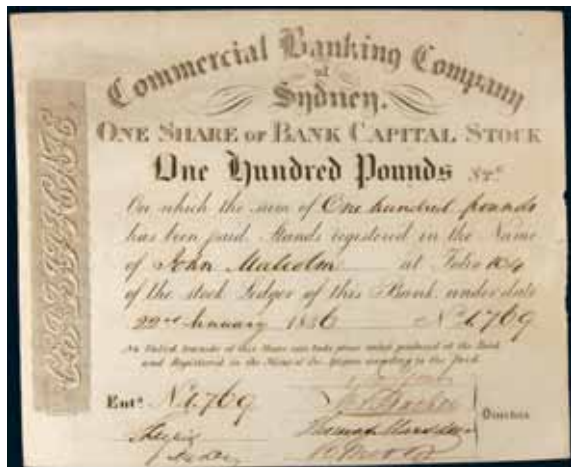 Commercial Banking Company
of
Sydney.
ONE SHARE OF BANK CAPITAL STOCK
One Hundred Pounds
On which the sum of One hundred pounds
has been paid. Stands registered in the Name
of John Malcolm at Folio 104
of the stock Ledger of this Bank under date
22nd January 1836 No. 1769
No Valid transfer of this Share can take place unless produced at the Bank
and Registered in the Name of the
Entd. No. 1769
Directors